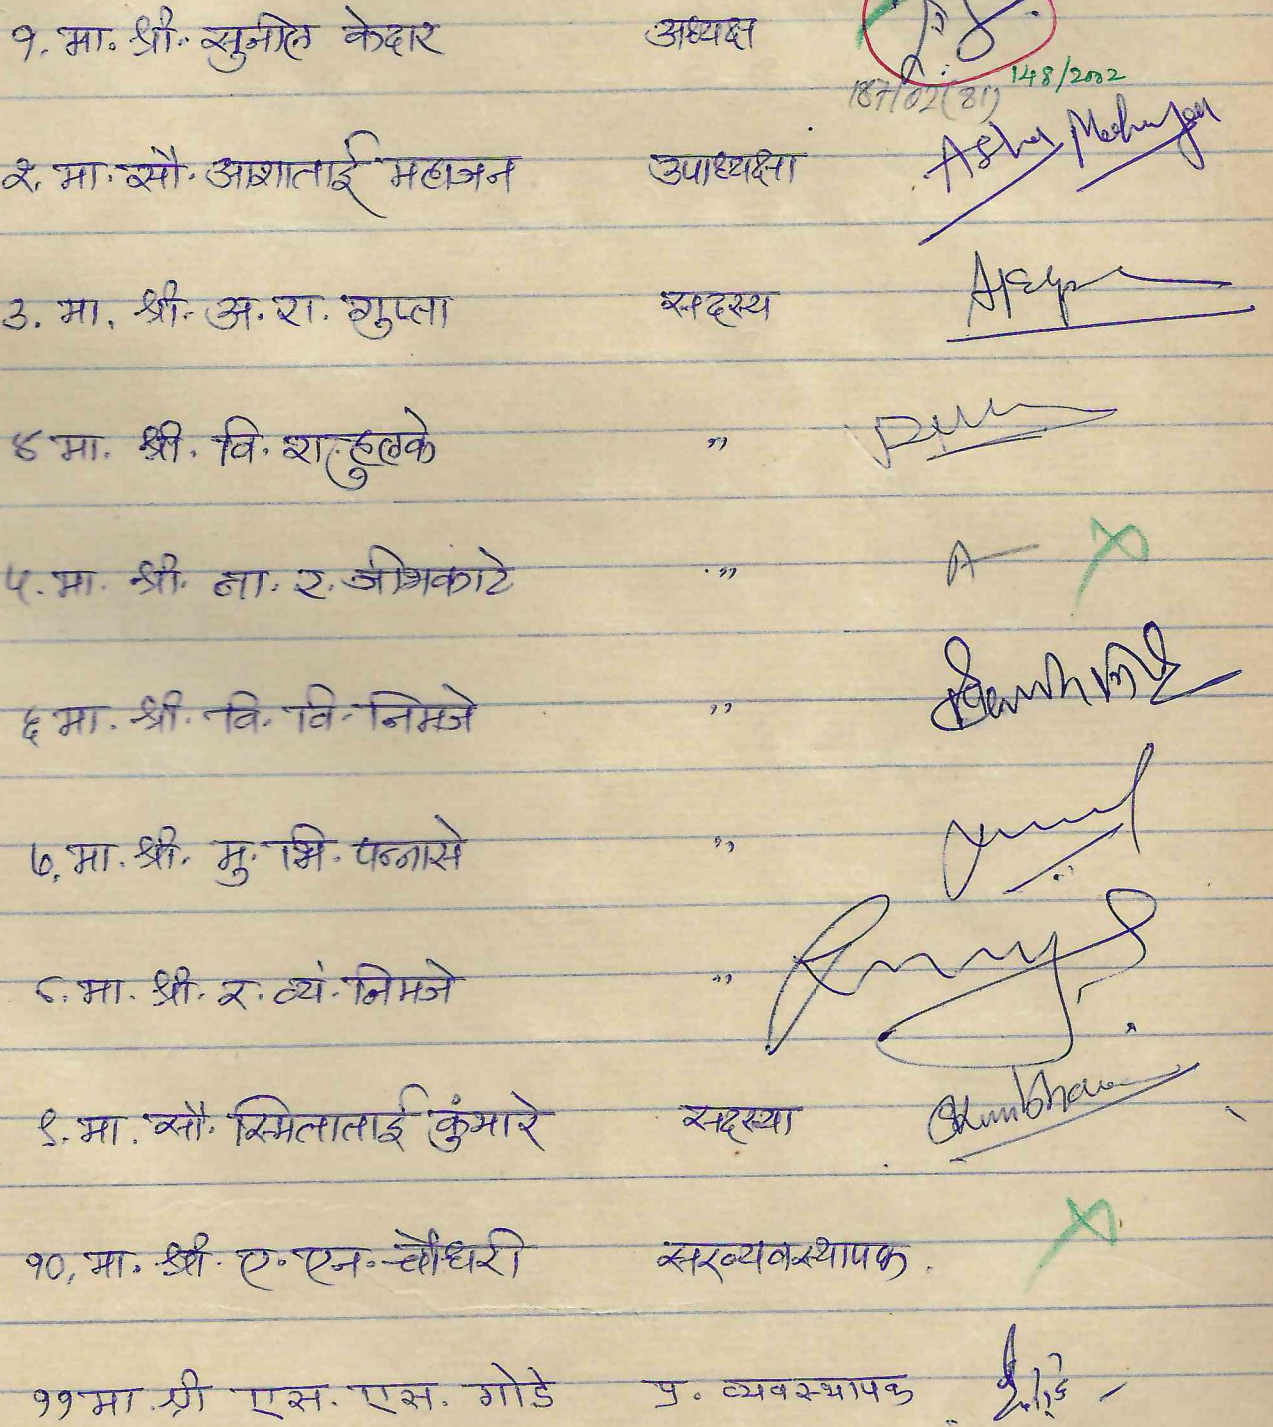 १. मा. श्री. सुनील केदार अध्यक्ष
148/2002
187/02(81)
२. मा. सौ. आशाताई महाजन उपाध्यक्षा Asha Mahajan
३. मा. श्री. अ. रा. गुप्ता सदस्य
४ मा. श्री. वि. रा. हुलके "
५. मा. श्री. ना. र. जीभकाटे " A
६ मा. श्री. वि. वि. निमजे "
७. मा. श्री. मु. भि. पन्नासे "
८. मा. श्री. र. व्यं. निमजे "
९. मा. सौ. स्मिताताई कुंभारे सदस्या
१०. मा. श्री. ए. एन. चौधरी सरव्यवस्थापक.
११ मा. श्री एस. एस. गोडे प्र. व्यवस्थापक